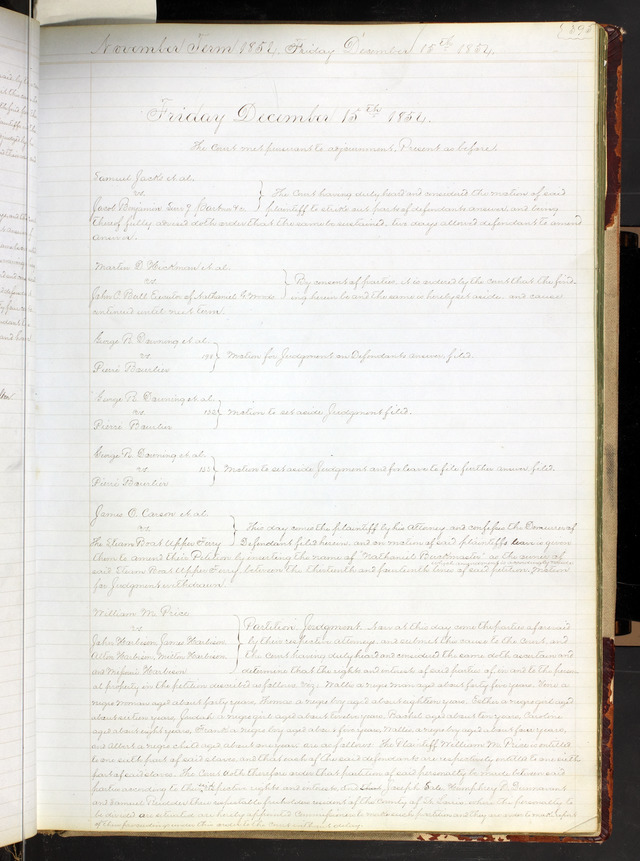 595
November Term 1854. Friday December 15th 1854.
Friday December 15th 1854.
The Court met pursuant to adjournment. Present as before.
Samuel Jacks et al.
vs.
The Court having duly heard and considered the motion of said
Jacob Benjamin
plaintiff to strike out parts of defendants answer, and being
thereof fully advised doth order that the same be sustained. two days allowed defendant to amend
answer.
Martin D. Hickman et al.
vs.
By consent of parties, it is ordered by the court that the find-
John C. Bull Executor of Nathaniel G.
ing herein be and the same is hereby set aside, and cause
continued until next term.
George R. Downing et al.
vs. Motion for Judgment on Defendants answer filed.
Pierre Bourlier
George R. Downing et al.
vs. 132 Motion to set aside Judgment filed.
Pierre Bourlier
George R. Downing et al.
vs. 133 Motion to set aside Judgment and for leave to file further answer filed.
Pierre Bourlier
James O. Carson et al.
vs.
This day comes the plaintiff by his Attorney and confesses the Demurrer of
The Steam Boat Upper Ferry
Defendant filed herein and on motion of said plaintiffs leave is given
them to amend their Petition by inserting the name of "Nathaniel Buckmaster" as the owner of
said Steam Boat Upper Ferry, between the thirteenth and fourteenth lines of said petition. Motion
for Judgment withdrawn.
William M. Price
vs.
Partition Judgment. Now at this day come the parties aforesaid
John Harbison, James Harbison
by their respective attorneys and submit this cause to the Court and
Alton Harbison, Milton Harbison
the Court having duly heard and considered the same doth ascertain and
and Harbison
determine that the rights and interest of said parties of in and to the person-
al property in the petition described as follows, viz: Walla a negro man aged about forty five years, a
negro woman aged about forty years, Thomas a negro boy aged about eighteen years, Esther a negro girl aged
about sixteen years, a negro girl aged about twelve years, Rachel aged about ten years, Caroline
aged about eight years, Frank a negro boy aged about five years, a negro boy aged about four years,
and Albert a negro child aged about one year are as follows: The Plaintiff William M. Price is entitled
to one sixth part of said slaves, and that each of the said defendants are respectively entitled to one sixth
part of said slaves. The Court doth therefore order that partition of said personalty be made between said
parties according to their respective rights and interests, and Joseph Humphrey
and Samuel three respectable freeholders resident of the County of St. Louis where the personalty to
be divided is situated are hereby appointed Commissioners to make such partition and they are